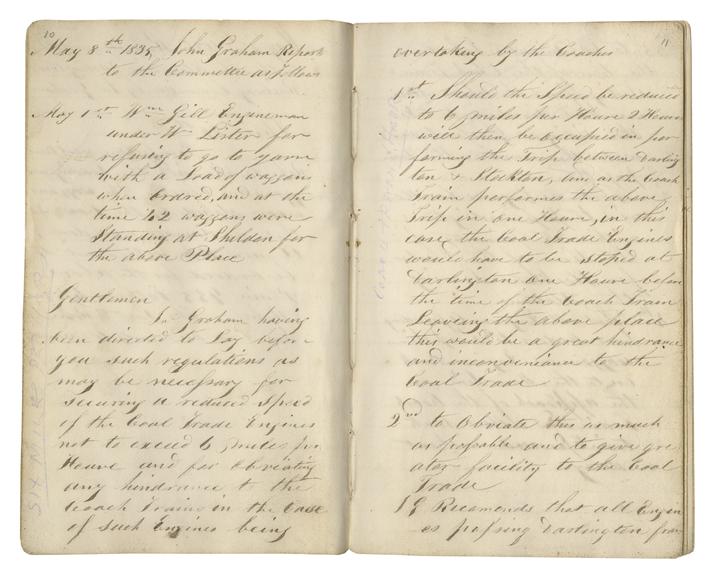 10
May 8th 1835, John Graham Report
to the Committee as follows
May 1st Wm Gill Engineman
under W Lister for
refusing to go to yarm
with a Load of waggons
when Ordred, and at the
time 42 waggons were
Standing at Shildon for
the above Place
Gentlemen
Jn Graham having
been directed to Lay before
you such regulations as
may be necessary for
securing a reduced speed
of the Coal Trade Engines
not to exceed 6 miles pr
Houre and for Obviating
any hindrance to the
Coach Trains in the Case
of such Engines being
SIX MILES
11
overtaking by the Coaches
1st Should the Speed be reduced
to 6 miles per Houre 2 Houres
will then be Occupied in per
forming the Trip between Darling
ton & Stockton, and as the Coach
Train performes the above
Trip in One Houre, in this
case, the Coal Trade Engines
would have to be Stoped at
Darlington one Houre before
the time of the Coach Train
Leaveing the above place
this would be a great hindrance
and inconveniance to the
Coal Trade
2nd to Obviate this as much
as possable and to give gre
ater facility to the Coal
Trade
JG Recomends that all Engin
es passing Darlington from